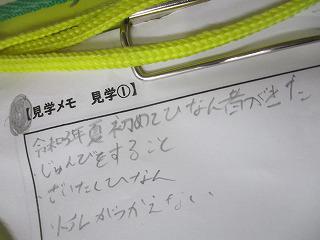 【見学メモ　見学①】
令和3年夏初めてひなん者がきた
じゅんびをすること
ざいたくひなん
トイレがつかえない